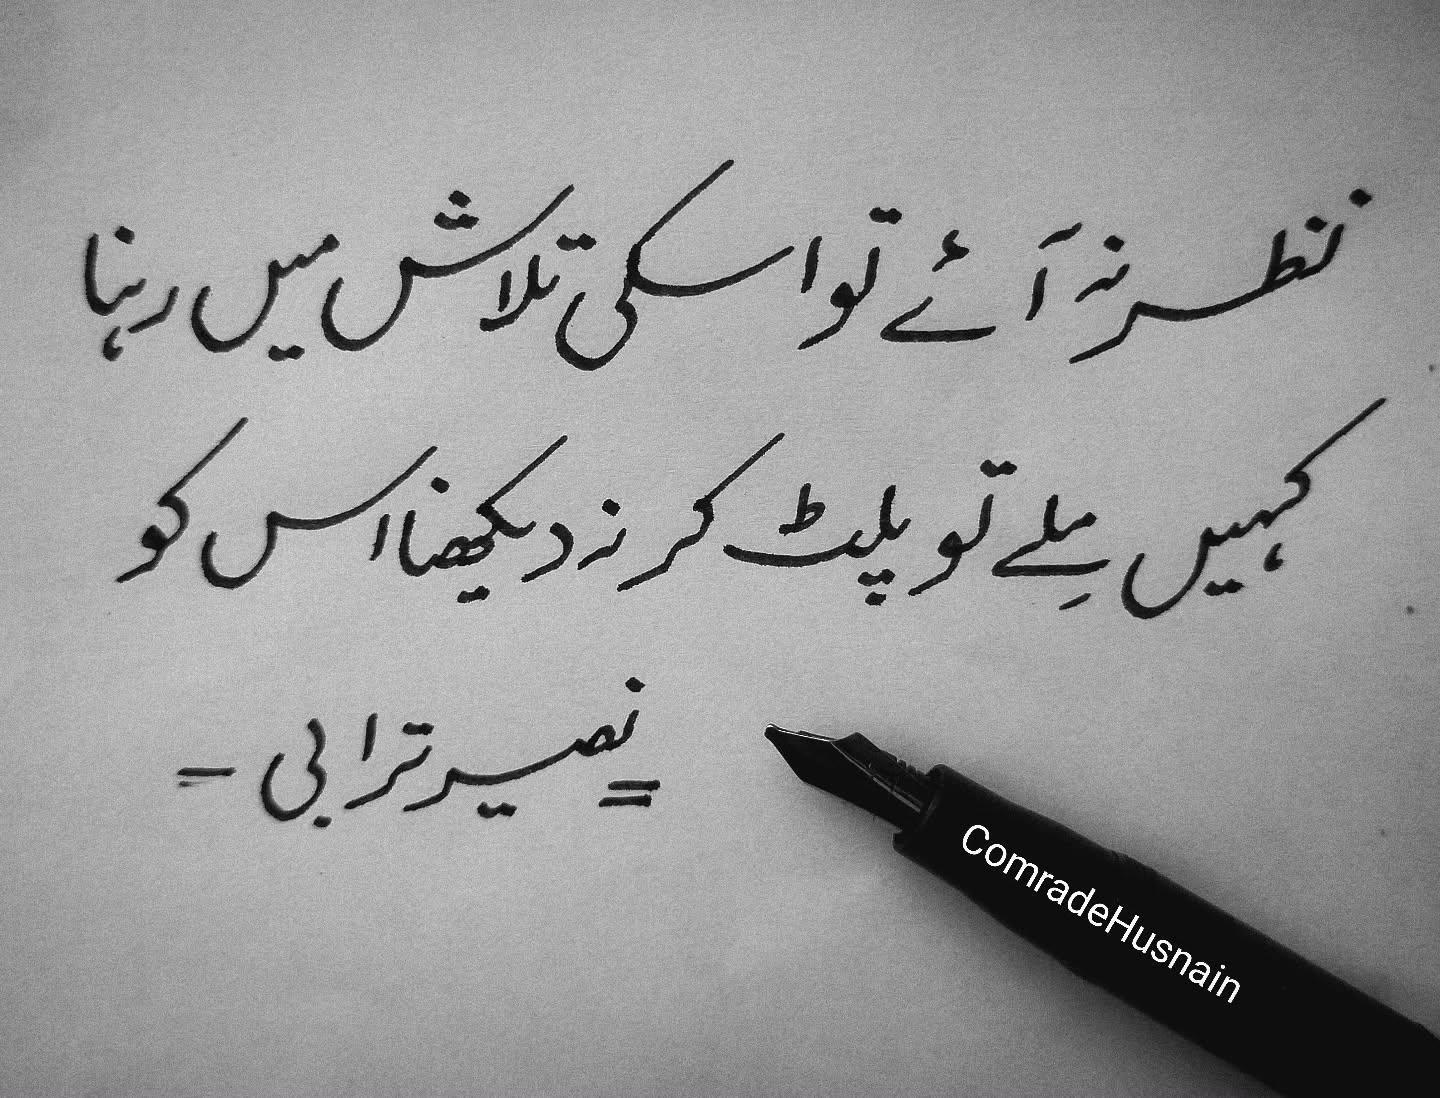 نظر نہ آئے تو اسکی تلاش میں رہنا
کہیں مِلے تو پلٹ کر نہ دیکھنا اس کو
نصیر ترابی
ComradeHusnain